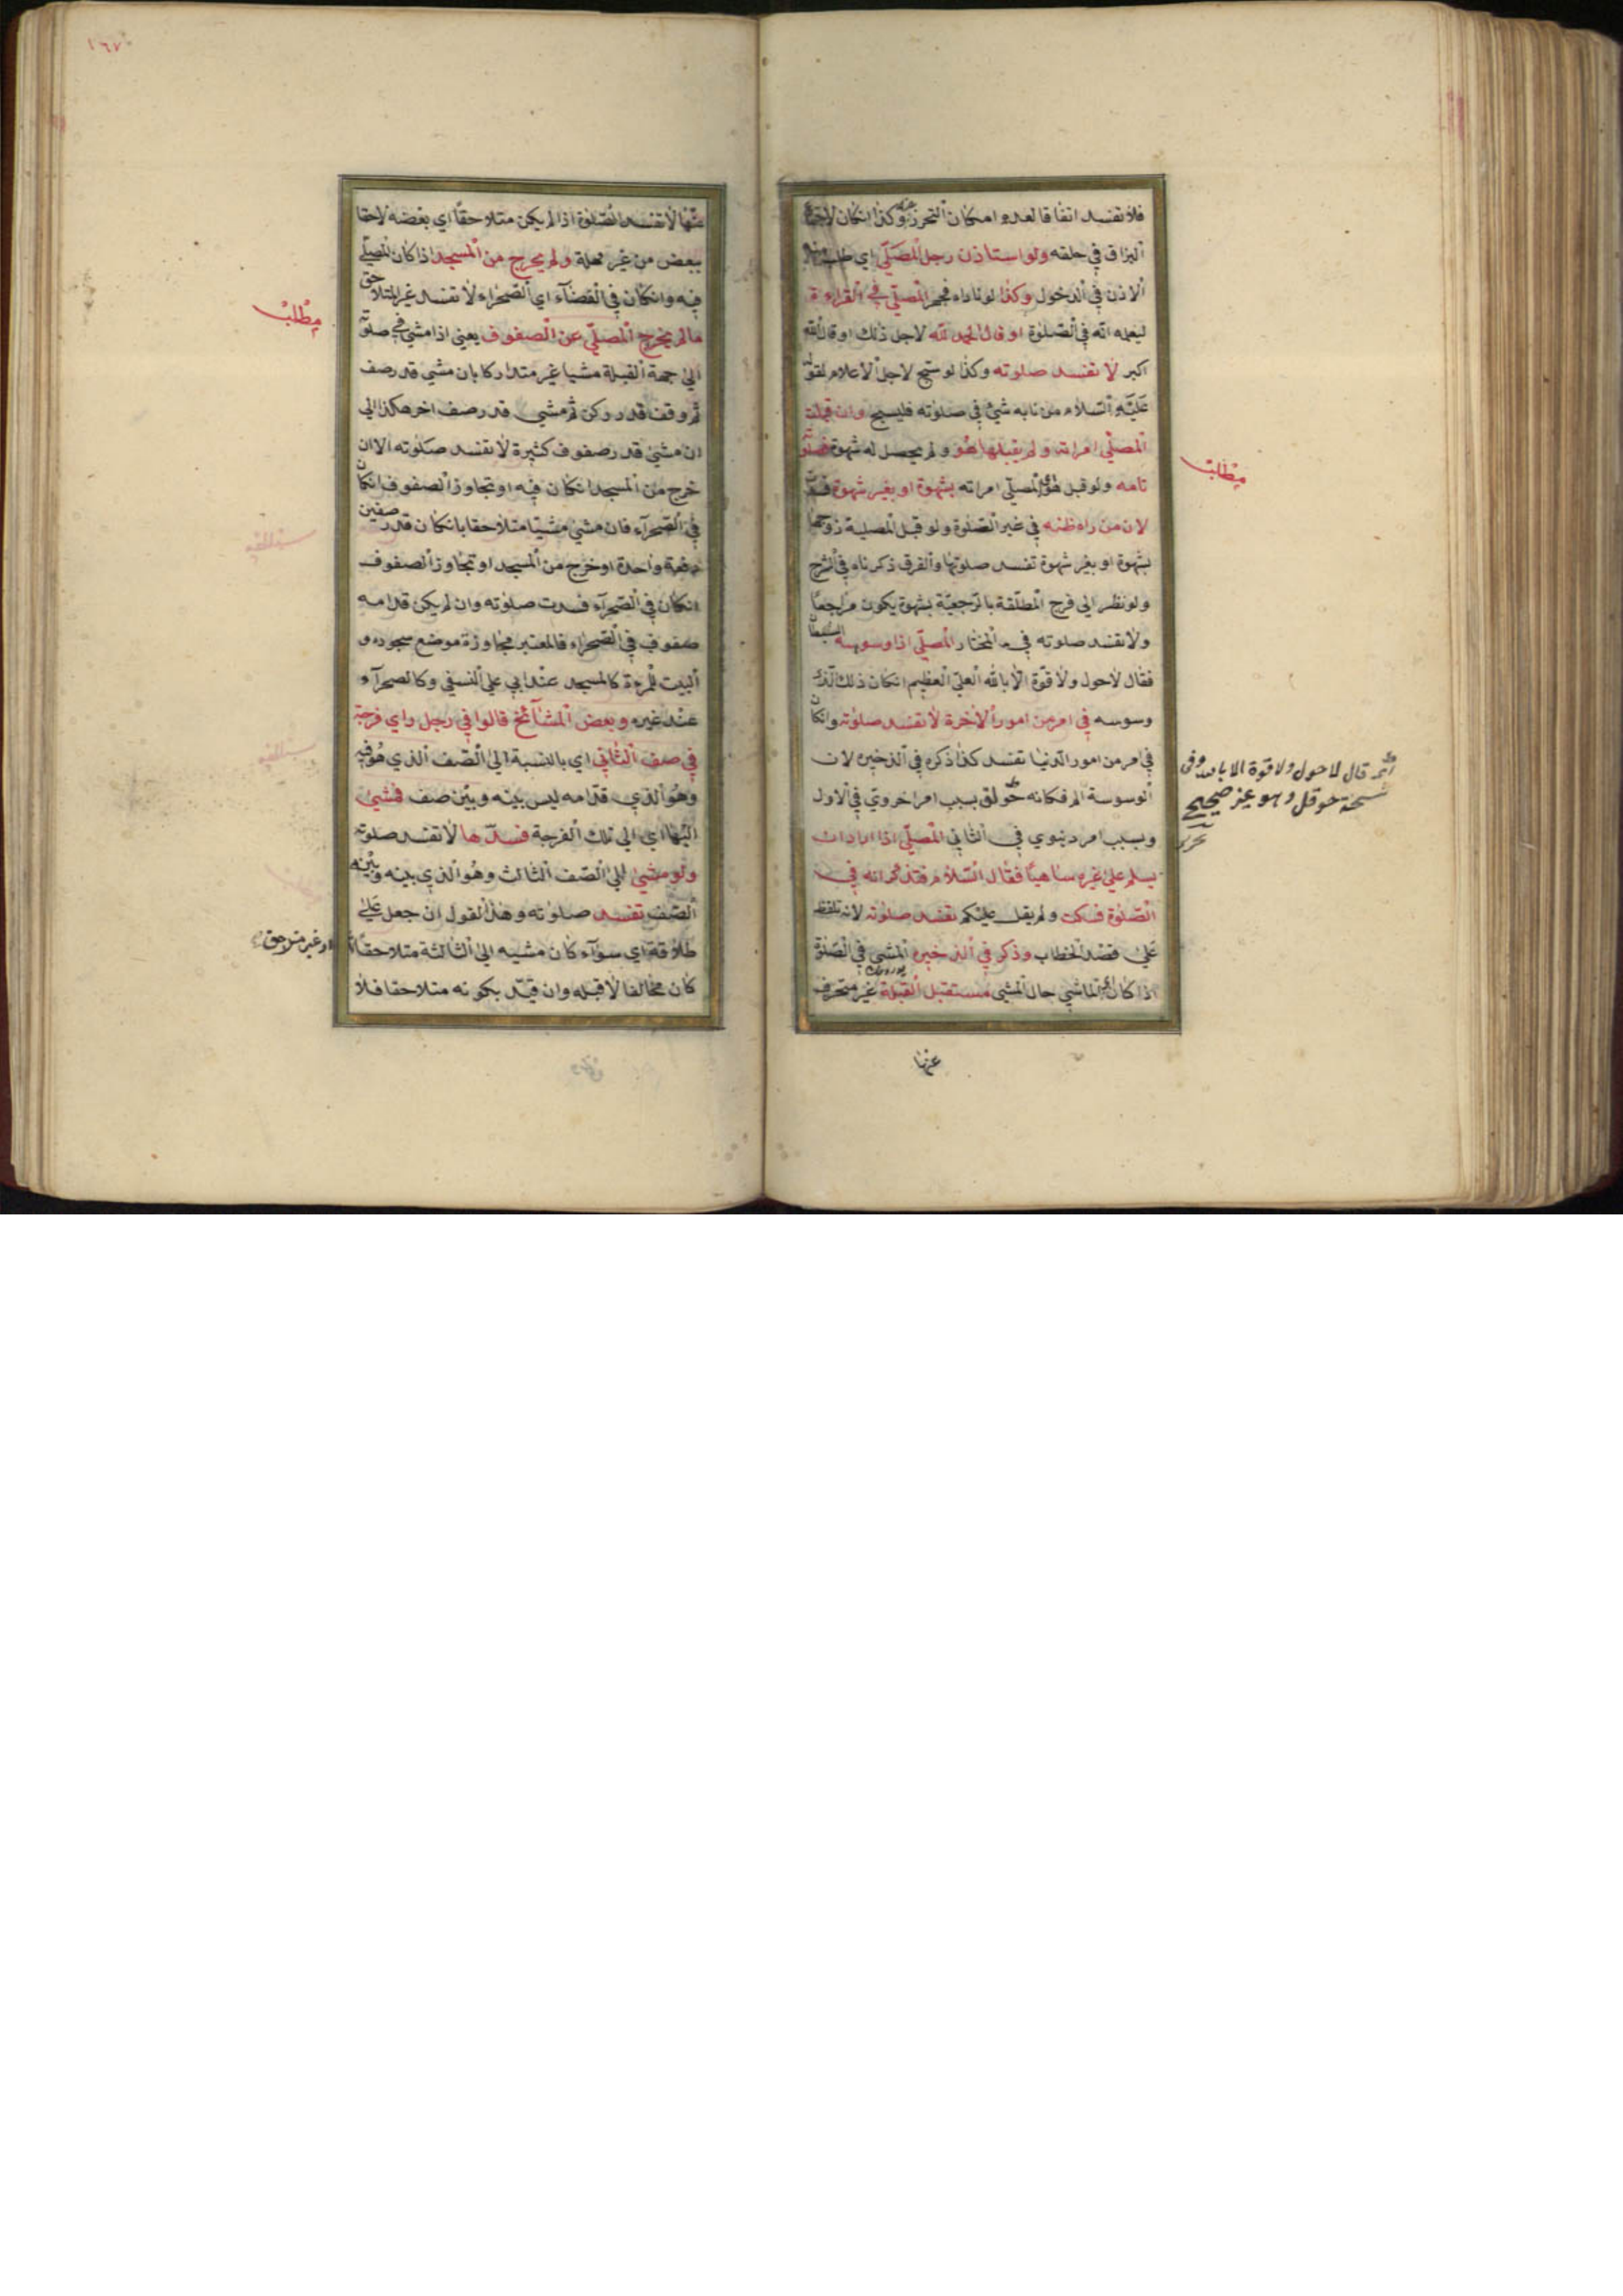 فلا تفسد اتفاقا لعدم امكان التحرز عنه وكذا انكان لاجتماع
البزاق في حلقه ولو استاذن رجل المصلي اي طلب منه
الاذن في الدخول وكذا لو ناداه فجهر المصلي في القراءة
ليعلمه انه في الصلوة او قال الحمد لله لاجل ذلك او قال الله
اكبر لا تفسد صلوته وكذا لو سبح لاجل الاعلام لقوله
عليه السلام من نابه شئ في صلوته فليسبح وان قبلت
المصلي امراته ولم يقبلها هو ولم يحصل له شهوة فصلوته
تامه ولو قبل هو اي المصلي امراته بشهوة او بغير شهوة فسدت
لان من راه ظنه في غير الصلوة ولو قبل المصلية زوجها
بشهوة او بغير شهوة تفسد صلوتها والفرق ذكرناه في الشرح
ولو نظر الى فرج المطلقة بالرجعية بشهوة يكون مراجعا
ولا تفسد صلوته في المختار المصلي اذا وسوسه الشيطان
فقال لاحول ولا قوة الا بالله العلي العظيم انكان ذلك الذي
وسوسه في امر من امور الاخرة لا تفسد صلوته وانكان
في امر من امور الدنيا تفسد كذا ذكره في الذخيره لان
الوسوسة الم فكانه حولق بسبب امر اخروي في الاول
وبسبب امر دنيوي في الثاني المصلي اذا اراد ان
يسلم على غيره ساهيا فقال السلام فتذكر انه في
الصلوة فسكت ولم يقل عليكم تفسد صلوته لانه تلفظ
على قصد الخطاب وذكر في الذخيره المشي في الصلوة
اذا كان اي الماشي حال المشي مستقبل القبلة غير متحرف
عنها
مطلب
اثم قال لا حول ولا قوة الا بالله وفى
نسخة حوقل وهو غير صحيح
١٦٧
عنها لا تفسد الصلوة اذا لم يكن متلاحقا اي بعضه لاحقا
ببعض من غير مهلة ولم يخرج من المسجد اذا كان المصلي
فيه وانكان في الفضاء اي الصحراء لا تفسد غير المتلاحق
مالم يخرج المصلي عن الصفوف يعني اذا مشي في صلوته
الى جهة القبلة مشيا غير متداركا بان مشي قدر صف
ثم وقف قدر ركن ثم مشي قدر صف اخر هكذا الى
ان مشي قدر صفوف كثيرة لا تفسد صلوته الا ان
خرج من المسجد انكان فيه او تجاوز الصفوف انكان
في الصحراء فان مشي مشيا متلاحقا بانكان قدر صفين
دفعة واحدة او خرج من المسجد او تجاوز الصفوف
انكان في الصحراء فسدت صلوته وان لم يكن قدامه
صفوف في الصحراء فالمعتبر مجاوزة موضع سجوده و
البيت للمرءة كالمسجد عند ابي علي النسفي وكالصحراء
عند غيره وبعض المشائخ قالوا في رجل راي فرجة
في صف الثاني اي بالنسبة الى الصف الذي هو فيه
وهو الذي قدامه ليس بينه وبين صف فمشي
اليها اي الى تلك الفرجة فسدها لا تفسد صلوته
ولو مشي الى الصف الثالث وهو الذي بينه وبينه
الصف تفسد صلوته وهذا القول ان جعل علي
طلاقه اي سواء كان مشيه الى الثالثة متلاحقا
كان مخالفا لا قبله وان قيد بكونه متلاحقا فلا
مطلب
او غير متلاحق